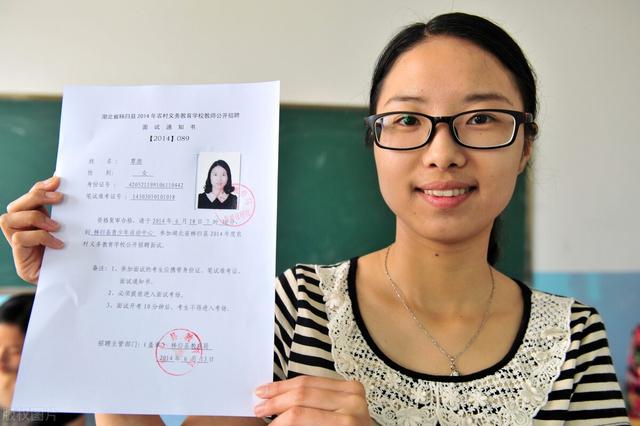 湖北省秭归县2014年农村义务教育学校教师公开招聘
面试通知书
【2014】089
姓名：
性别：女
身份证号：420521199106110442
笔试准考证号：14303050101018
资格复审合格，请于2014年6月18日7时
到秭归县青少年活动中心参加湖北省秭归县2014年度农
村义务教育学校公开招聘面试。
备注：1、参加面试的考生应携带身份证、笔试准考证、
面试通知书。
2、必须提前进入面试考场。
3、面试开考10分钟后，考生不得进入考场。
招聘主管部门：（盖章）秭归县教育局
2014年6月13日
版权图片